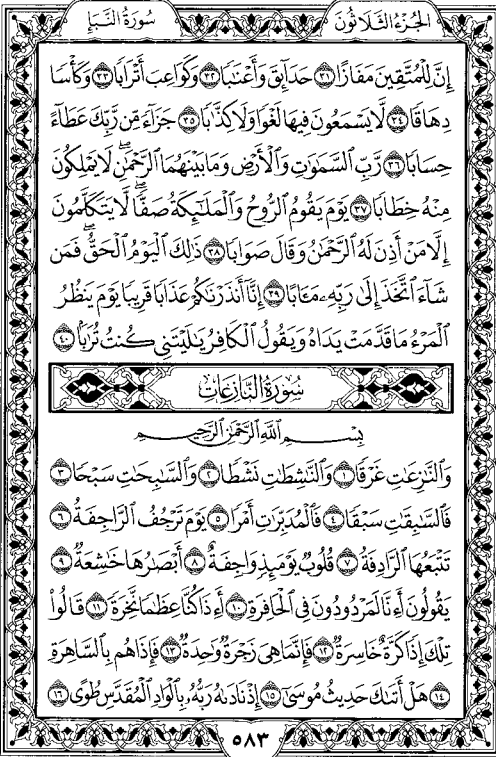 سُورَةُ النَّبَإِ الجُزْءُ الثَّلَاثُونَ
إِنَّ لِلْمُتَّقِينَ مَفَازًا ٣١ حَدَآئِقَ وَأَعْنَٰبًا ٣٢ وَكَوَاعِبَ أَتْرَابًا ٣٣ وَكَأْسًا
دِهَاقًا ٣٤ لَّا يَسْمَعُونَ فِيهَا لَغْوًا وَلَا كِذَّٰبًا ٣٥ جَزَآءً مِّن رَّبِّكَ عَطَآءً
حِسَابًا ٣٦ رَّبِّ ٱلسَّمَٰوَٰتِ وَٱلْأَرْضِ وَمَا بَيْنَهُمَا ٱلرَّحْمَٰنِ ۖ لَا يَمْلِكُونَ
مِنْهُ خِطَابًا ٣٧ يَوْمَ يَقُومُ ٱلرُّوحُ وَٱلْمَلَٰٓئِكَةُ صَفًّا ۖ لَّا يَتَكَلَّمُونَ
إِلَّا مَنْ أَذِنَ لَهُ ٱلرَّحْمَٰنُ وَقَالَ صَوَابًا ٣٨ ذَٰلِكَ ٱلْيَوْمُ ٱلْحَقُّ ۖ فَمَن
شَآءَ ٱتَّخَذَ إِلَىٰ رَبِّهِۦ مَـَٔابًا ٣٩ إِنَّآ أَنذَرْنَٰكُمْ عَذَابًا قَرِيبًا يَوْمَ يَنظُرُ
ٱلْمَرْءُ مَا قَدَّمَتْ يَدَاهُ وَيَقُولُ ٱلْكَافِرُ يَٰلَيْتَنِى كُنتُ تُرَٰبًۢا ٤٠
سُورَةُ النَّازِعَاتِ
بِسْمِ ٱللَّهِ ٱلرَّحْمَٰنِ ٱلرَّحِيمِ
وَٱلنَّٰزِعَٰتِ غَرْقًا ١ وَٱلنَّٰشِطَٰتِ نَشْطًا ٢ وَٱلسَّٰبِحَٰتِ سَبْحًا ٣
فَٱلسَّٰبِقَٰتِ سَبْقًا ٤ فَٱلْمُدَبِّرَٰتِ أَمْرًا ٥ يَوْمَ تَرْجُفُ ٱلرَّاجِفَةُ ٦
تَتْبَعُهَا ٱلرَّادِفَةُ ٧ قُلُوبٌ يَوْمَئِذٍ وَاجِفَةٌ ٨ أَبْصَٰرُهَا خَٰشِعَةٌ ٩
يَقُولُونَ أَءِنَّا لَمَرْدُودُونَ فِى ٱلْحَافِرَةِ ١٠ أَءِذَا كُنَّا عِظَٰمًا نَّخِرَةً ١١ قَالُوا۟
تِلْكَ إِذًا كَرَّةٌ خَاسِرَةٌ ١٢ فَإِنَّمَا هِىَ زَجْرَةٌ وَٰحِدَةٌ ١٣ فَإِذَا هُم بِٱلسَّاهِرَةِ
١٤ هَلْ أَتَىٰكَ حَدِيثُ مُوسَىٰٓ ١٥ إِذْ نَادَىٰهُ رَبُّهُۥ بِٱلْوَادِ ٱلْمُقَدَّسِ طُوًى ١٦
٥٨٣